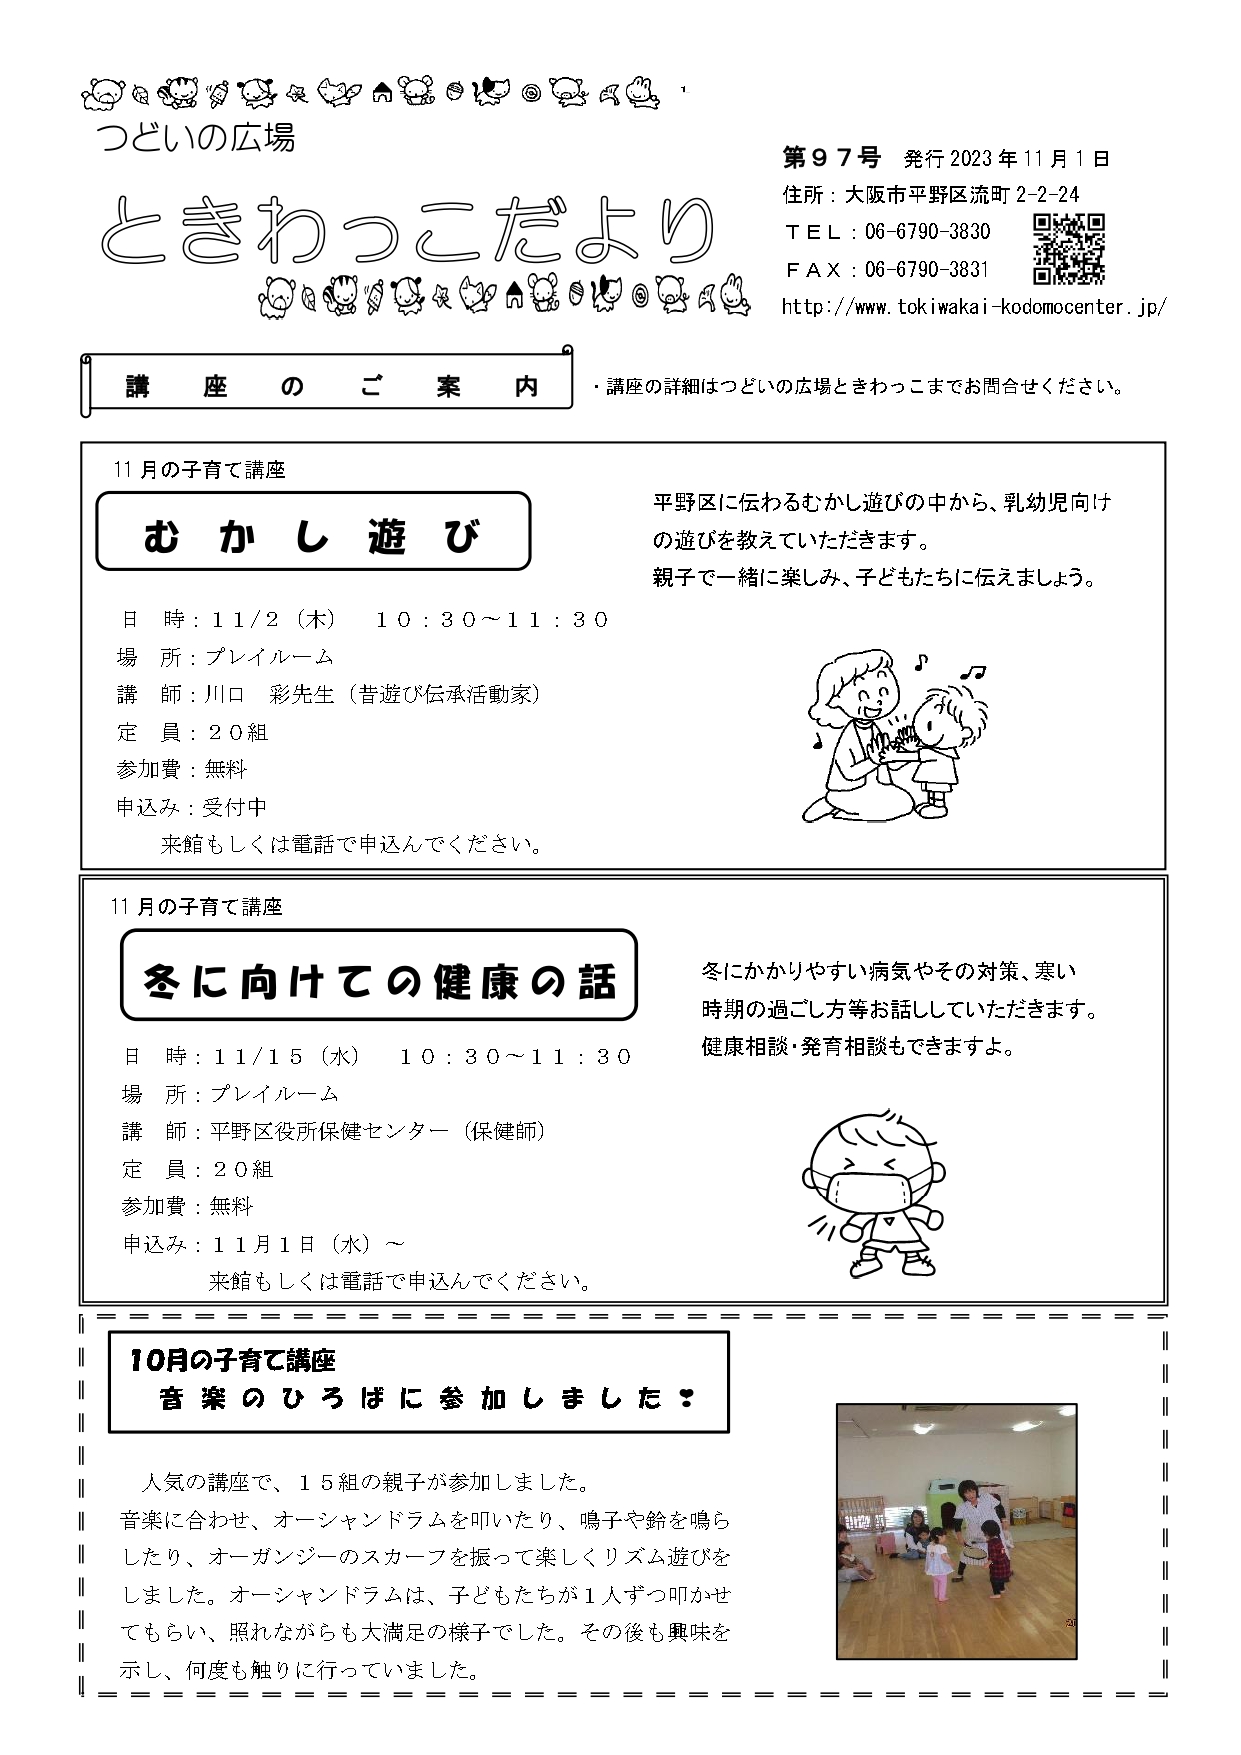 つどいの広場
ときわっこだより
第９７号　発行 2023 年 11 月 1 日
住所：大阪市平野区流町 2-2-24
ＴＥＬ：06-6790-3830
ＦＡＸ：06-6790-3831
http://www.tokiwakai-kodomocenter.jp/
講座のご案内
・講座の詳細はつどいの広場ときわっこまでお問合せください。
11 月の子育て講座
むかし遊び
平野区に伝わるむかし遊びの中から、乳幼児向け
の遊びを教えていただきます。
親子で一緒に楽しみ、子どもたちに伝えましょう。
日　時：１１/２（木）　１０：３０～１１：３０
場　所：プレイルーム
講　師：川口　彩先生（昔遊び伝承活動家）
定　員：２０組
参加費：無料
申込み：受付中
来館もしくは電話で申込んでください。
11 月の子育て講座
冬に向けての健康の話
冬にかかりやすい病気やその対策、寒い
時期の過ごし方等お話ししていただきます。
健康相談・発育相談もできますよ。
日　時：１１/１５（水）　１０：３０～１１：３０
場　所：プレイルーム
講　師：平野区役所保健センター（保健師）
定　員：２０組
参加費：無料
申込み：１１月１日（水）～
来館もしくは電話で申込んでください。
10月の子育て講座
音楽のひろばに参加しました❣
人気の講座で、１５組の親子が参加しました。
音楽に合わせ、オーシャンドラムを叩いたり、鳴子や鈴を鳴ら
したり、オーガンジーのスカーフを振って楽しくリズム遊びを
しました。オーシャンドラムは、子どもたちが１人ずつ叩かせ
てもらい、照れながらも大満足の様子でした。その後も興味を
示し、何度も触りに行っていました。